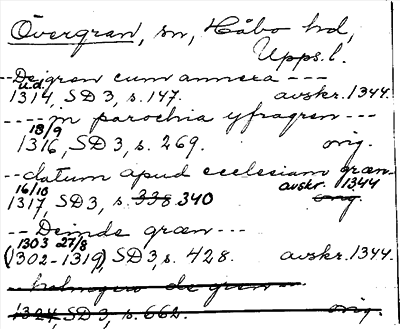 Övergran, sn, Håbo hd,
Upps. l.
-- De gren cum annexa ---
u.d.
1314, SD 3, s. 147. avskr. 1344.
---- in parochia yfragren ---
18/9
1316, SD 3, s. 269. orig.
-- datum apud ecclesiam græn--
16/10 avskr. 1344
1317, SD 3, s. 338. 340 orig.
-- Deinde græn ---
1303 27/8
(1302-1319), SD 3, s. 428. avskr. 1344.
-- holmgero de gren --
1324, SD 3, s. 662. orig.